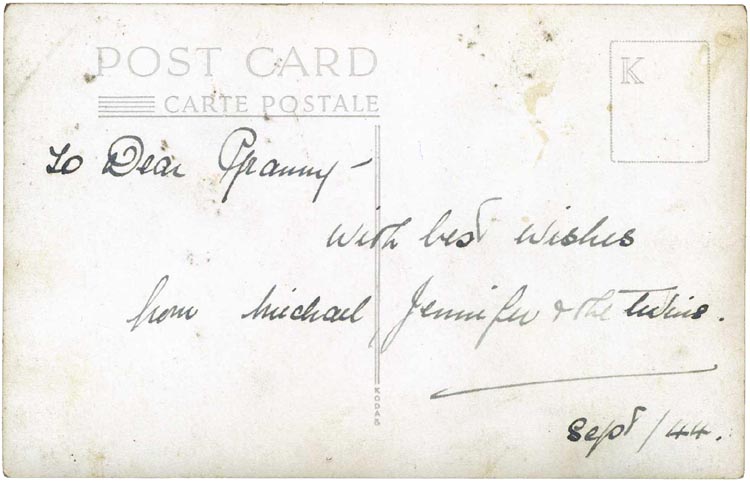 POST CARD
CARTE POSTALE
K
To Dear Granny –
With best wishes
from Michael, Jennifer & the twins.
Sept/44.
KODAK